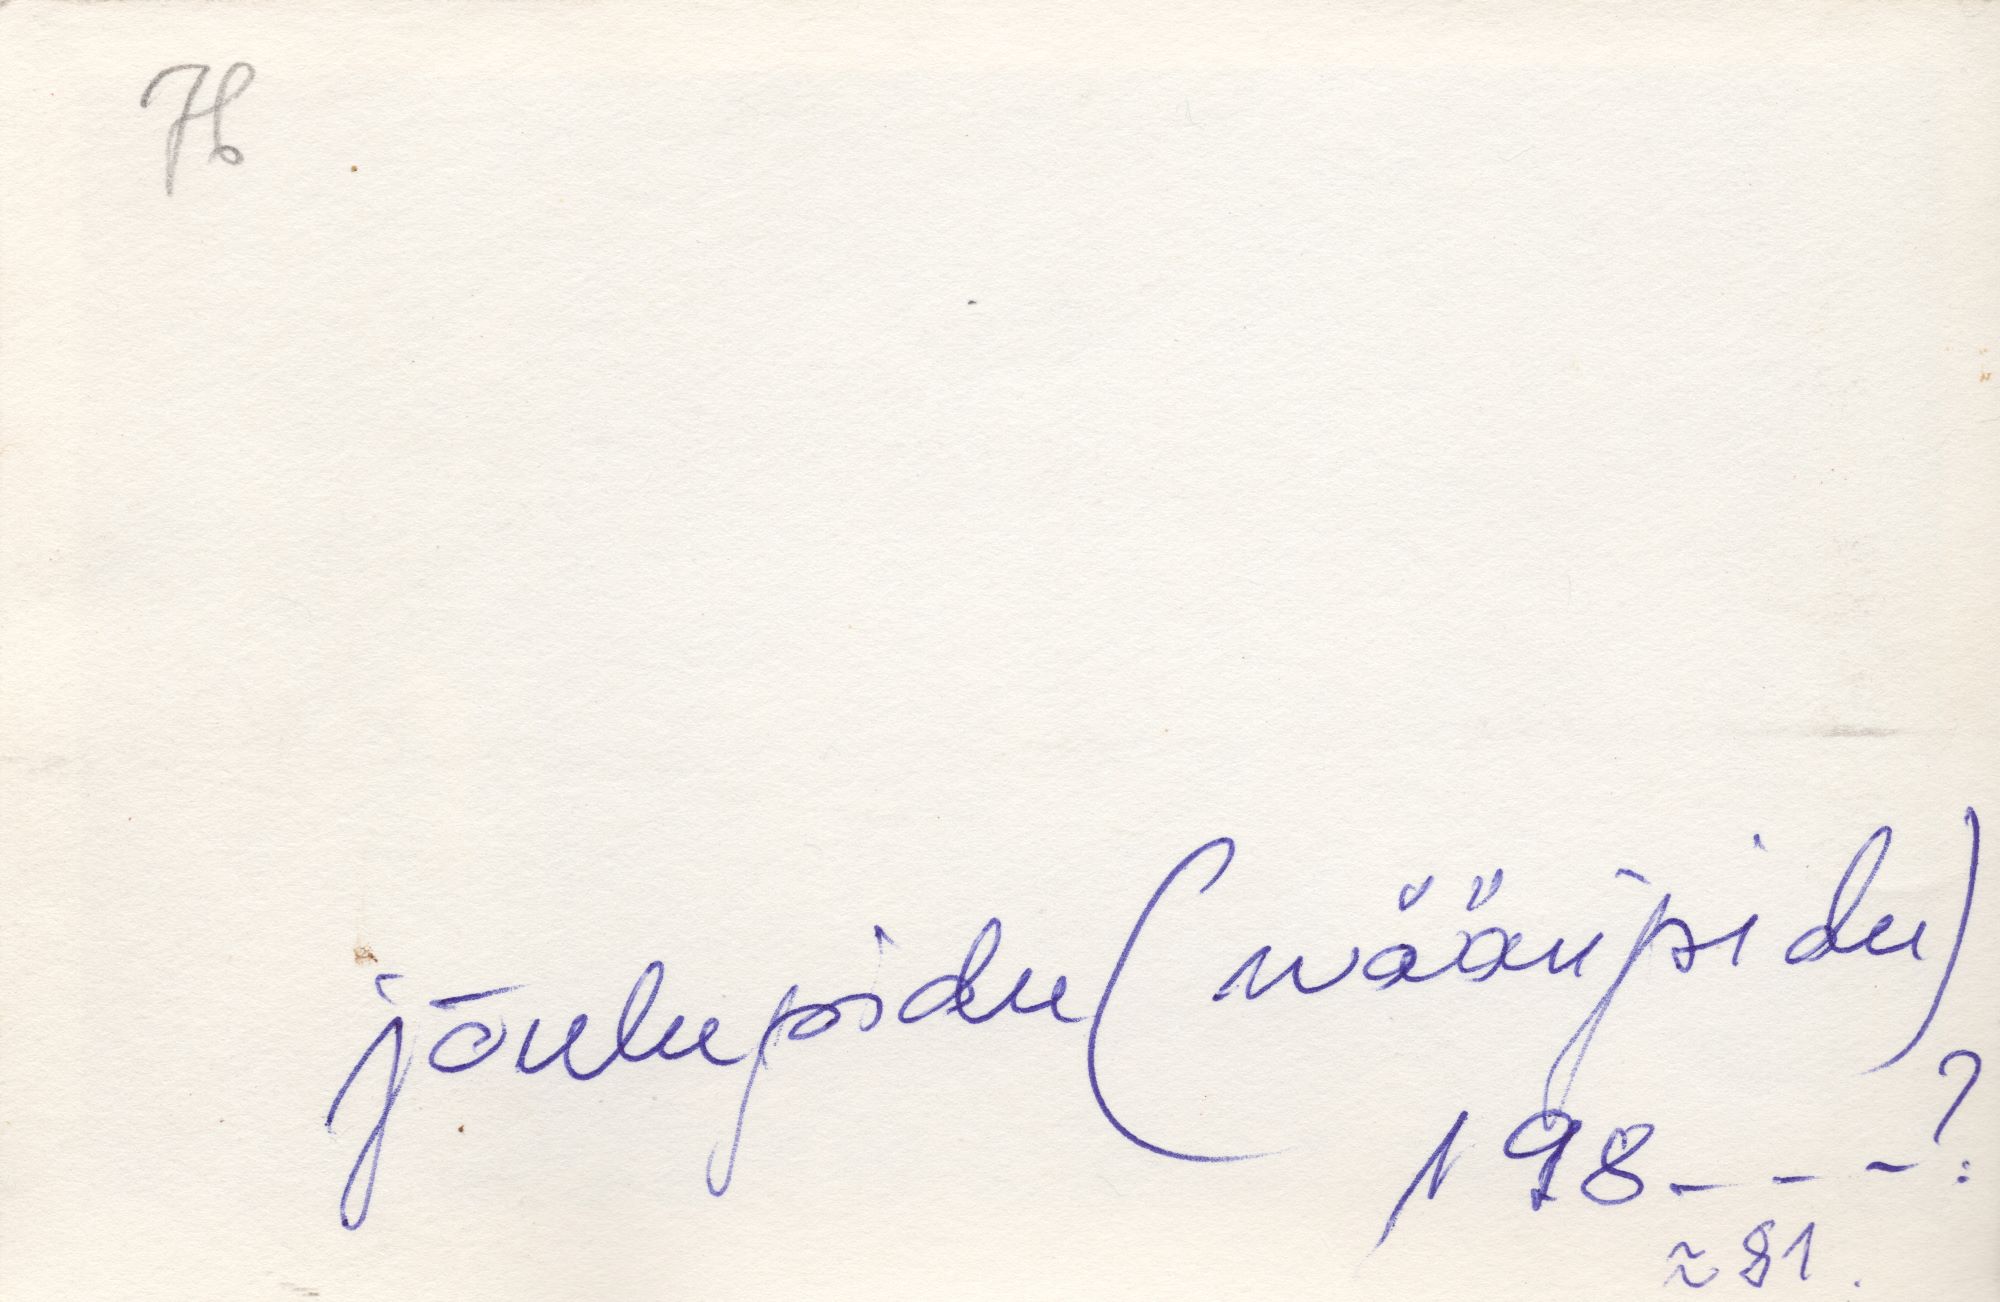 H
jõulupidu (nääripidu)
198 - - - ?
≈ 81.